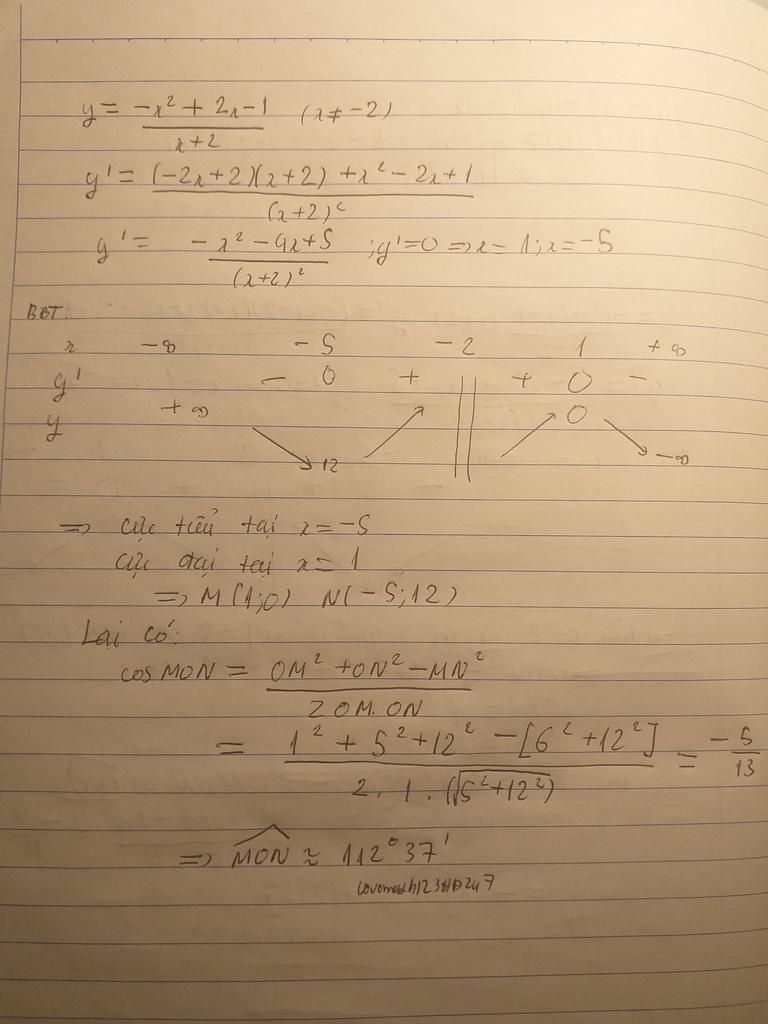 y = (-x² + 2x - 1)/(x+2) (x ≠ -2)
y' = ((-2x+2)(x+2) + x² - 2x + 1)/(x+2)²
y' = (-x² - 4x + 5)/(x+2)² ; y' = 0 => x = 1; x = -5
BBT:
x -∞ -5 -2 1 +∞
y' - 0 + || + 0 -
y +∞ ↘ 12 ↗ || ↗ 0 ↘ -∞
=> cực tiểu tại x = -5
cực đại tại x = 1
=> M(1;0) N(-5;12)
Lại có:
cos MON = (OM² + ON² - MN²)/(2 OM. ON)
= (1² + 5² + 12² - [6² + 12²])/(2 . 1 . (√(5² + 12²))) = -5/13
=> MON ≈ 112°37'